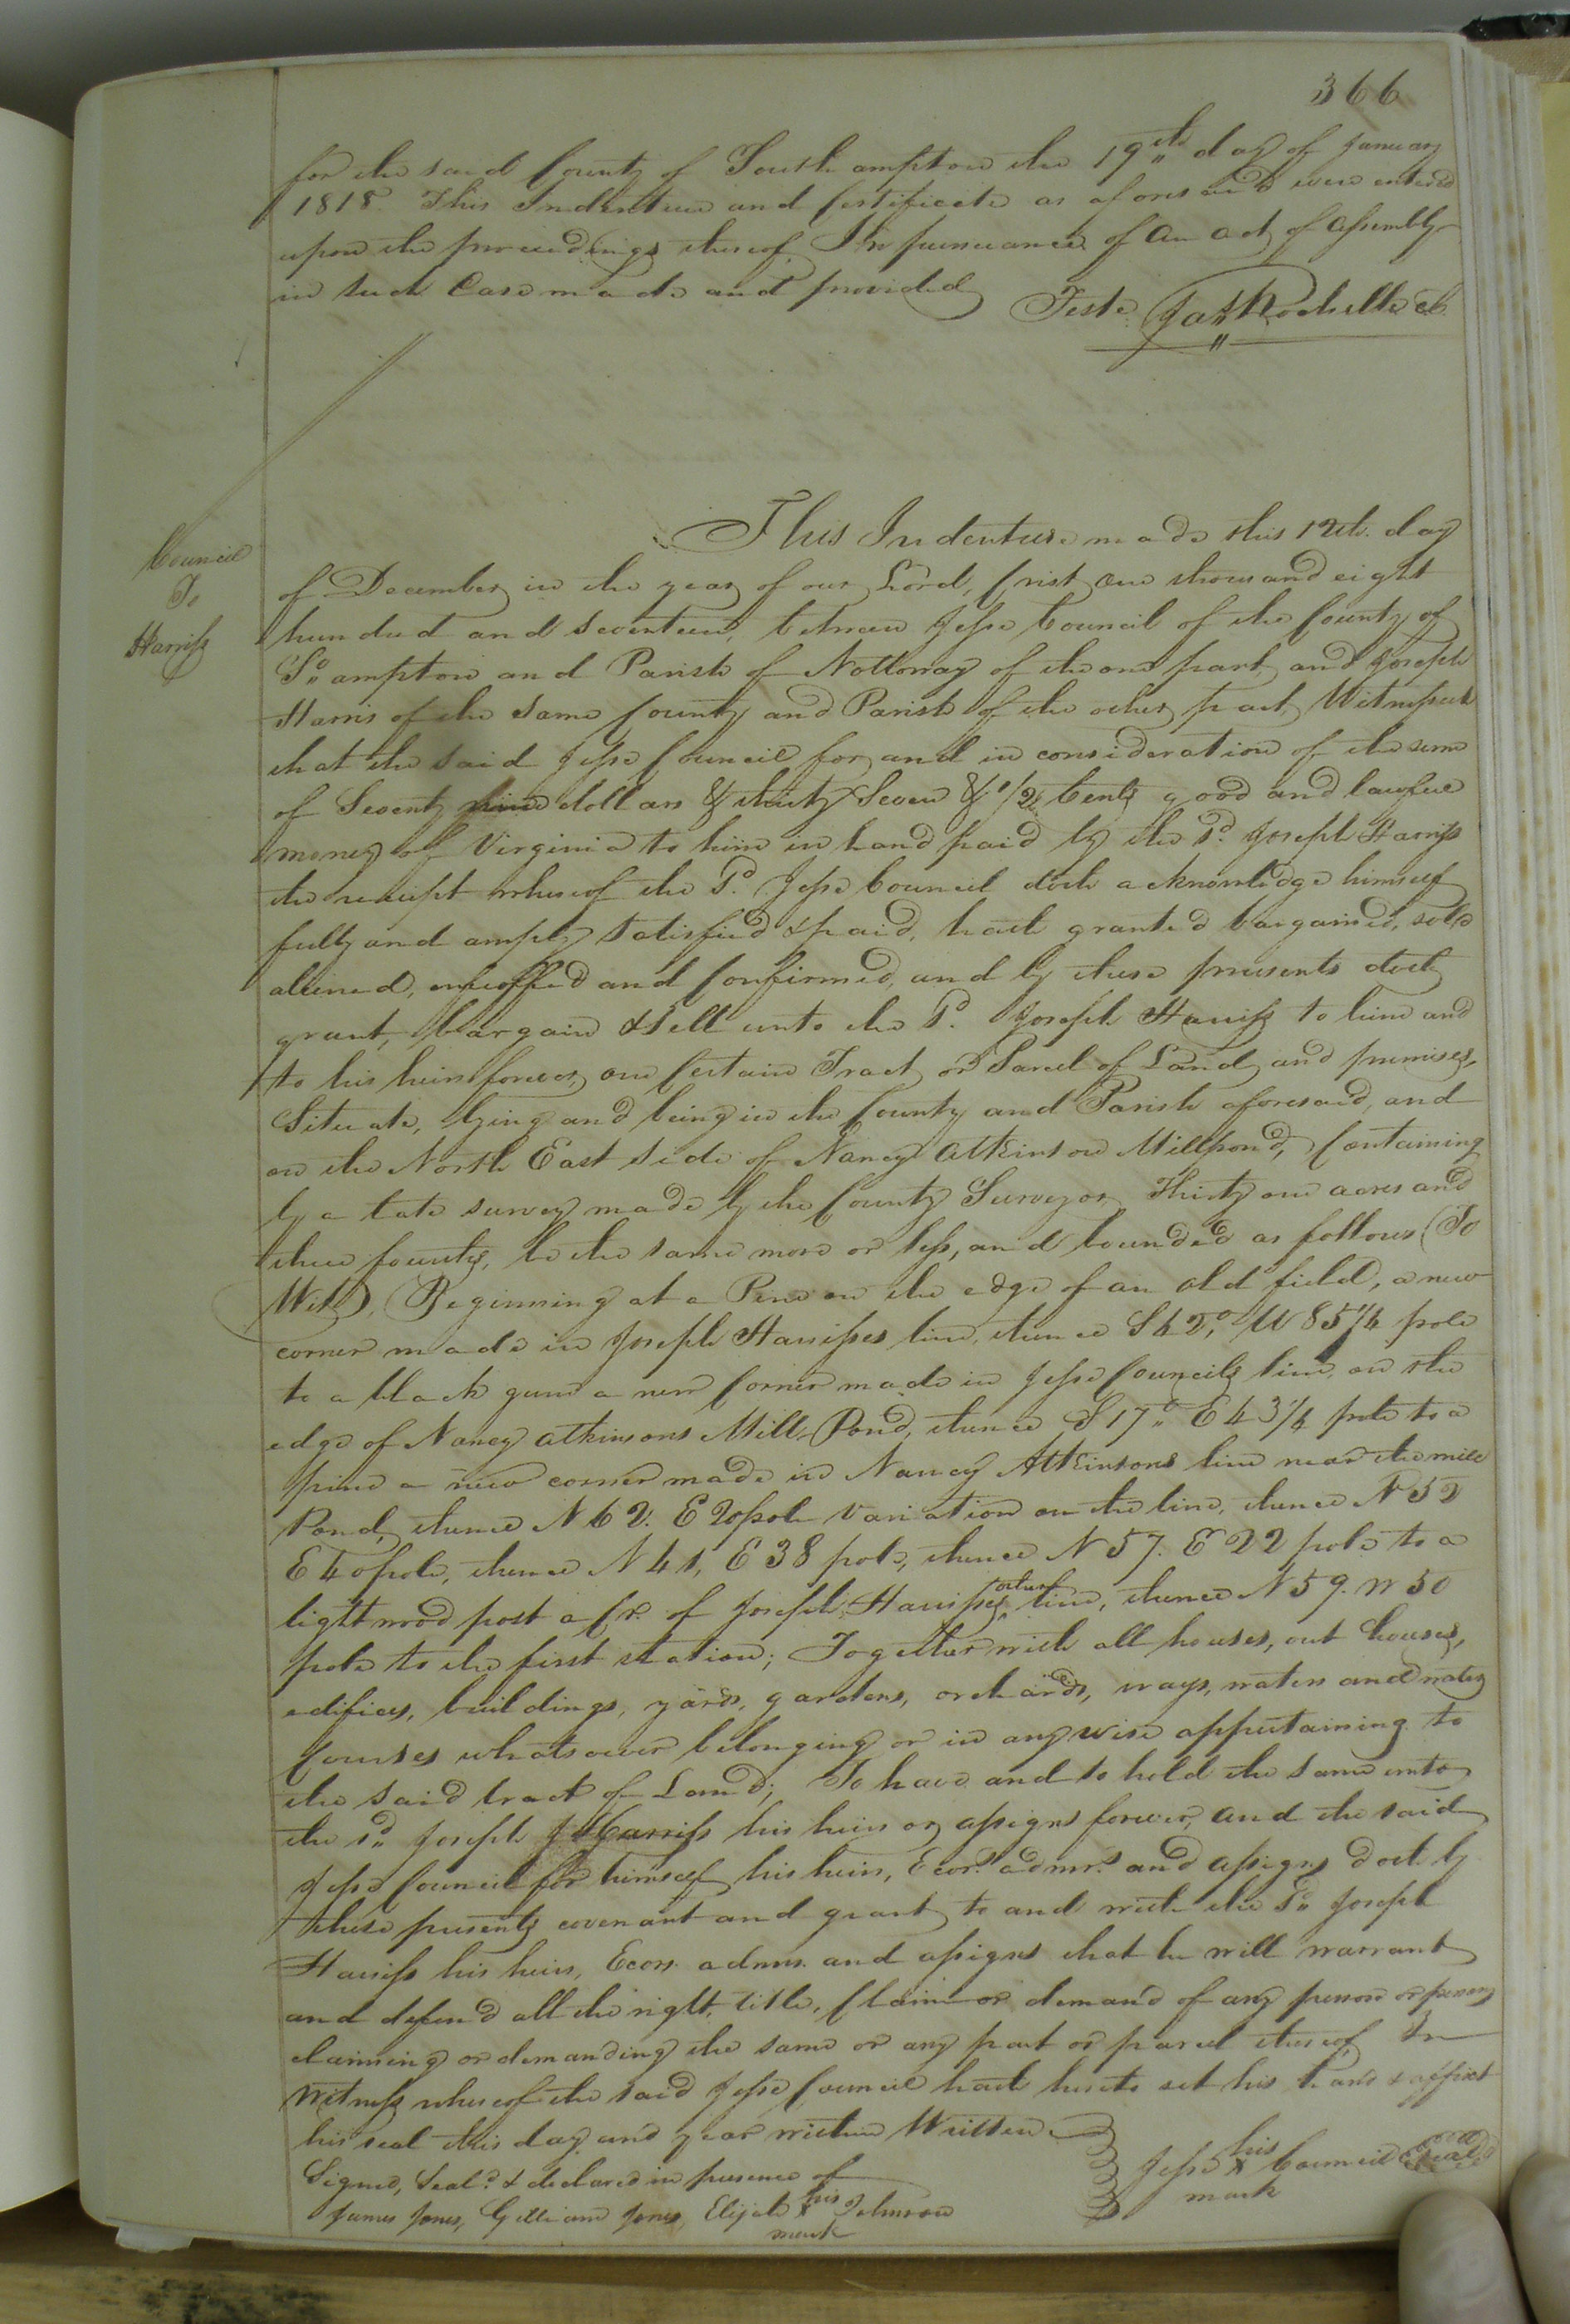 366
for the said County of Southampton the 19th day of January
1818. This Indenture and Certificate as aforesaid were entered
upon the proceedings thereof. In pursuance of an act of assembly
in such Case made and provided
Teste Jas Rochelle cl.
Council
To
Harriss
This Indenture made this 12th. day
of December in the year of our Lord, Crist one thousand eight
hundred and seventeen, between Jesse Council of the County of
So ampton and Parish of Nottoway of the one part, and Joseph
Harris of the same County and Parish of the other part, Witnesseth
that the said Jesse Council for and in consideration of the sum
of Seventy nine dollars & thirty Seven & 1/2 Cents good and lawful
money of Virginia to him in hand paid by the sd. Joseph Harriss
the receipt whereof the sd. Jesse Council doth acknowledge himself
fully and amply satisfied & paid, hath granted bargained, sold
aliened, enfeoffed and Confirmed, and by these presents doth
grant, bargain & sell unto the sd. Joseph Harriss to him and
to his heirs forever, one Certain Tract or Parcel of Land and premises,
Situate, lying and being in the County and Parish aforesaid, and
on the North East side of Nancy Atkinson Millpond, Containing
by a late survey made by the County Surveyor, Thirty one acres and
three fourths, be the same more or less, and bounded as follows (To
Wit), Beginning at a Pine on the edge of an old field, a new
corner made in Joseph Harrisses line, thence S 42,° W 85 1/4 pole
to a black gum a new Corner made in Jesse Councils line, on the
edge of Nancy Atkinsons Mill Pond, thence S 17° E 43 1/4 pole to a
pine a new corner made in Nancy Atkinsons line near the mill
Pond, thence N 62. E 20 pole variation on the line, thence N 52
E 40 pole, thence N 41, E 38 pole, thence N 57. E 22 pole to a
lightwood post a Cr. of Joseph Harrisses other line, thence N 59. W 50
pole to the first station; Together with all houses, out houses,
edifices, buildings, yards, gardens, orchards, ways, waters and water
Courses whatsoever belonging or in any wise appertaining to
the said tract of Land; To have and to hold the same unto
the sd. Joseph Harriss his heirs or assigns forever, and the said
Jesse Council for himself his heirs, Ecors. admrs. and assigns doth by
these presents covenant and grant to and with the sd. Joseph
Harriss his heirs, Ecors. admrs. and assigns that he will warrant
and defend all the right, title, Claim or demand of any person or persons
claiming or demanding the same or any part or parcel thereof In
witness whereof the said Jesse Council hath hereto set his hand & affixt
his seal this day and year within Written
Signed, Seald. & declared in presence of
James Jones, Elijah his X mark Johnson
Jesse his X mark Council Seal